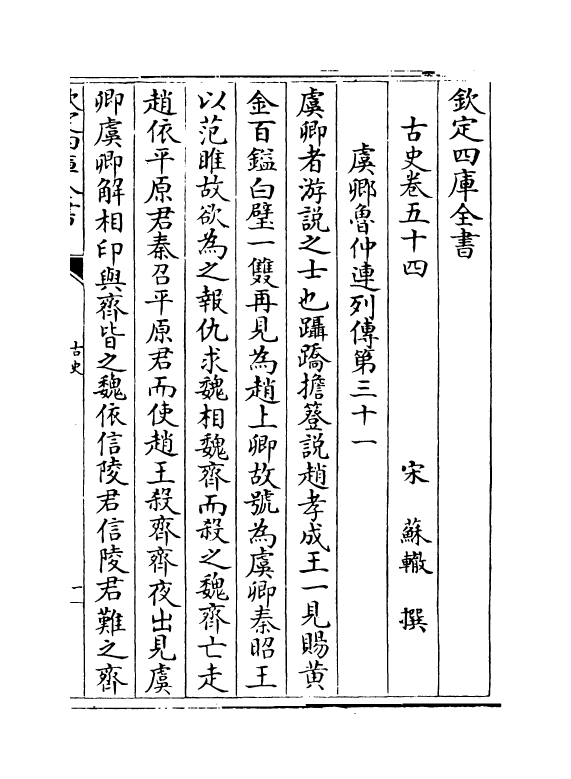 欽定四庫全書
古史卷五十四　宋　蘇轍　撰
虞卿魯仲連列傳第三十一
虞卿者游説之士也躡蹻擔簦説趙孝成王一見賜黄
金百鎰白璧一雙再見為趙上卿故號為虞卿秦昭王
以范雎故欲為之報仇求魏相魏齊而殺之魏齊亡走
趙依平原君秦召平原君而使趙王殺齊齊夜出見虞
卿虞卿解相印與齊皆之魏依信陵君信陵君難之齊
古史
一